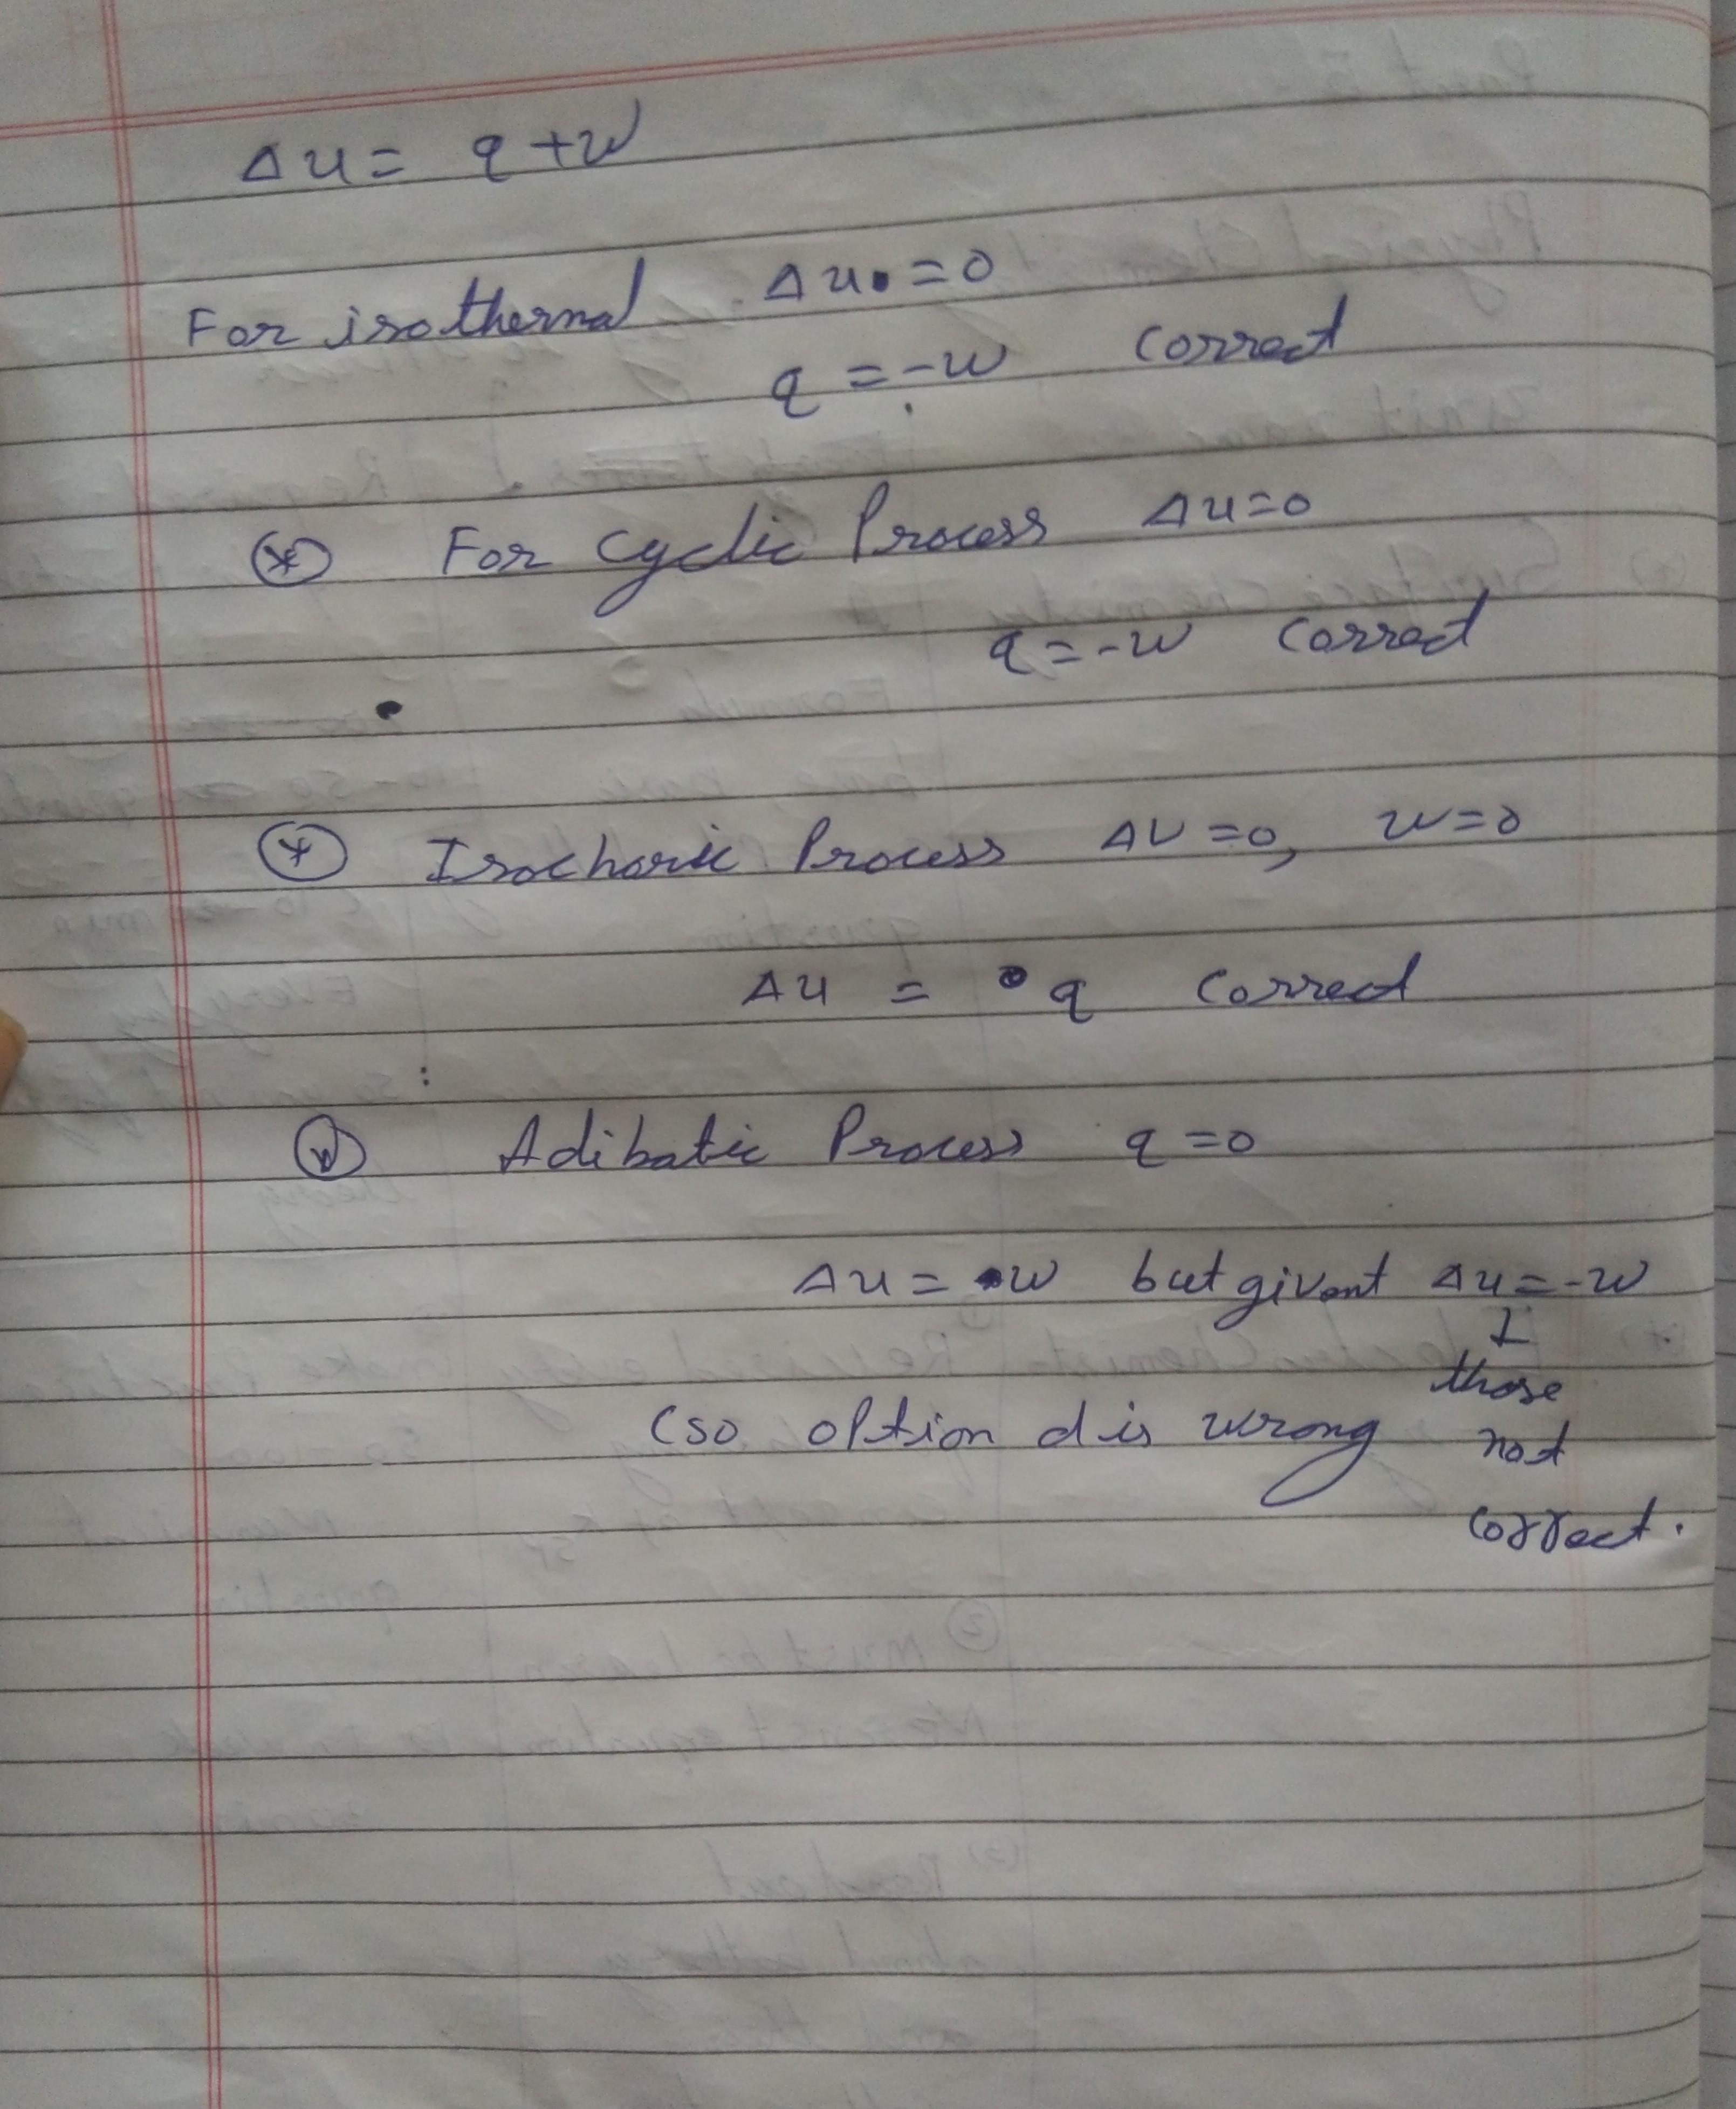 Δu = q + w
For isothermal Δu = 0
q = -w correct
For cyclic Process Δu = 0
q = -w correct
Isochoric Process ΔV = 0, w = 0
Δu = q correct
Adibatic Process q = 0
Δu = w but given Δu = -w
(so option d is wrong
those
not
correct.